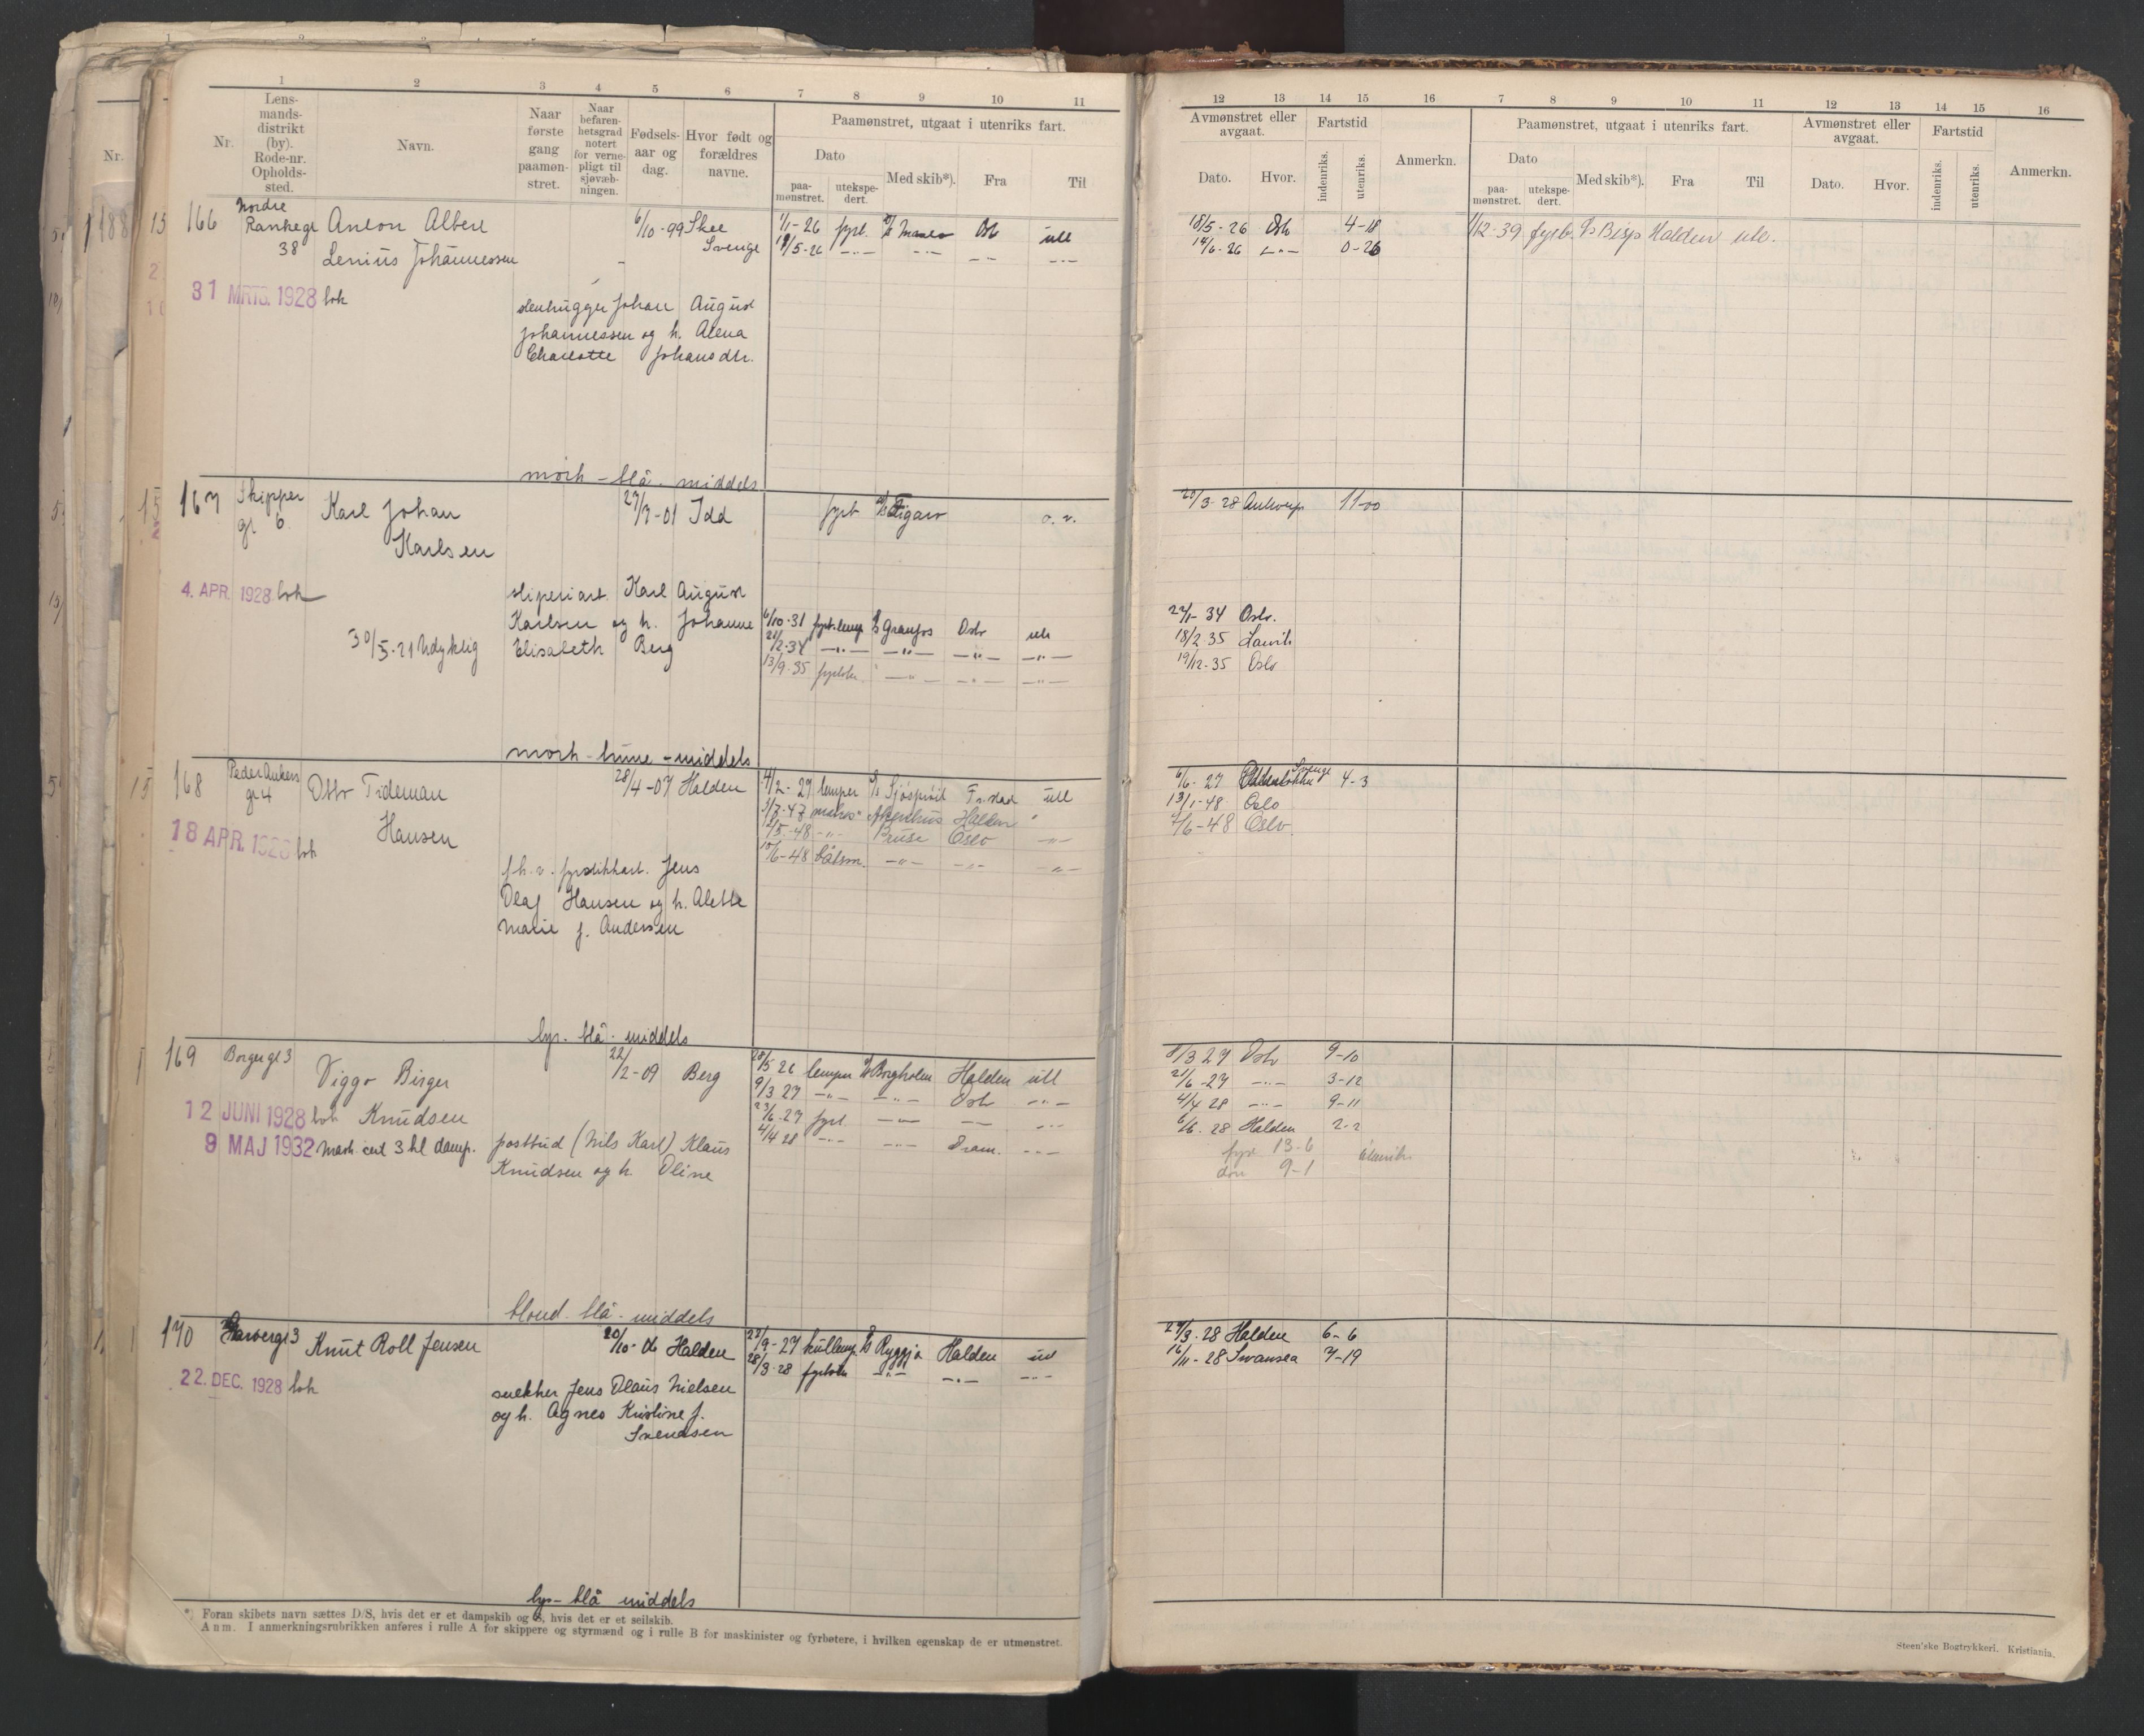 1 2 3 4 5 6 7 8 9 10 11
Nr.
Lens-
mands-
distrikt
(by).
Rode-nr.
Opholds-
sted.
Navn.
Naar
første
gang
paamøn-
stret.
Naar
befaren-
hetsgrad
notert
for verne-
pligt til
sjøvæb-
ningen.
Fødsels-
aar og
dag.
Hvor født og
forældres
navne.
Paamønstret, utgaat i utenriks fart.
Dato
paa-
mønstret.
utekspe-
dert.
Med skib*).
Fra
Til
12 13 14 15 16 7 8 9 10 11 12 13 14 15 16
Avmønstret eller
avgaat.
Dato. Hvor.
Fartstid
indenriks. utenriks.
Anmerkn.
Paamønstret, utgaat i utenriks fart.
Dato
paa-
mønstret.
utekspe-
dert.
Med skib*). Fra Til
Avmønstret eller
avgaat.
Dato. Hvor.
Fartstid
indenriks. utenriks.
Anmerkn.
Nr.
188
166 Nordre Rankegt 38 Anton Albert 6/10-99 Skee 1/1-26 fyrb. Oslo utl 18/5-26 Oslo 4-18 1/12-39 fyrb. D/s Bisp Halden utl.
Lenius Johannessen Sverige 19/5-26 -"- -"- -"- -"- 14/6-26 -"- 0-26
31 MRTS. 1928 lok
stenhugger Johan August
Johannessen og h. Alena
Charlotte Johansdtr.
mörk - blå - middels
167 Skipper gt 6 Karl Johan 27/7-01 Idd fyrb D/s Figaro o. v. 20/3-28 Antwerp 11-00
Karlsen
4. APR. 1928 lok
sliperiarb. Karl August
Karlsen og h. Johanne 6/10-31 fyrb. lemp D/s Granfos Oslo utl 27/1-34 Oslo.
30/5-21 Udyktig Elisabeth Berg 21/2-34 -"- -"- -"- -"- 18/2 35 Larvik
13/9-35 fyrböter -"- -"- -"- 19/12-35 Oslo
mörk - brune - middels
168 Peder Ankers gt 4 Otto Tideman 28/4-07 Halden 4/2-27 lemper D/s Fr.stad utl 6/6-27 Sverige 4-3
Hansen 1/7-47 matros Akershus Halden " 13/1-48 Oslo
/5-48 -"- Bruse Oslo -"- 7/6-48 Oslo.
18 APR. 1928 lok 10/6-48 båtsm. -"- -"- -"-
fh. v. fyrstikkarb. Jens
Olaf Hansen og h. Alette
Marie f. Andersen
lys - blå - middels
169 Borger gt 3 Viggo Birger 22/2-09 Berg 28/5 26 lemper D/s Borgholm Halden utl 8/3 27 Oslo 9-10
9/3 27 -"- -"- Oslo -"- 21/6-27 -"- 3-12
12 JUNI 1928 lok Knudsen 23/6-27 fyrb. -"- -"- -"- 4/4 28 -"- 9-11
9 MAJ 1932 mask. cert 3 kl damp. postbud (Nils Karl) Klaus 4/4 28 -"- -"- Dram. -"- 6/6. 28 Halden 2-2
Knudsen og h. Oline fyrb 13-6 utenriks
9-1
blond - blå - middels
170 3 Knut Roll Jensen 20/10-06 Halden 22/9-27 kullemp. D/s Ryggja Halden utl 27/3-28 Halden 6-6
28/3-28 fyrböter -"- -"- -"- 16/11-28 Swansea 7-19
22. DEC. 1928 lok
snekker Jens Olaus Nielsen
og h. Agnes Kristine f.
Svendsen
lys - blå middels
*) Foran skibets navn sættes D/S, hvis det er et dampskib og S, hvis det er et seilskib.
Anm. I anmerkningsrubrikken anføres i rulle A for skippere og styrmænd og i rulle B for maskinister og fyrbøtere, i hvilken egenskap de er utmønstret.
Steen'ske Bogtrykkeri. Kristiania.